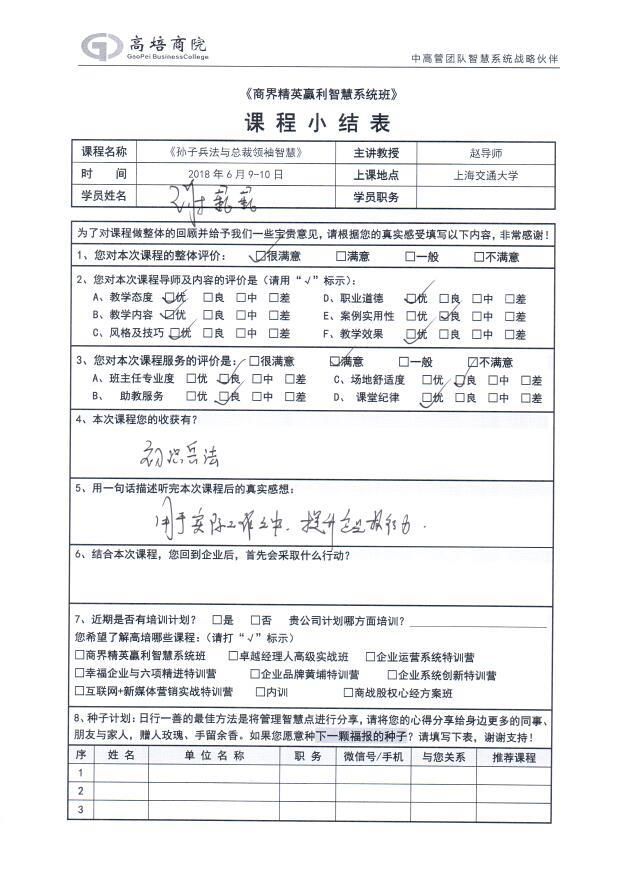 高培商院
GaoPei BusinessCollege
中高管团队智慧系统战略伙伴
《商界精英赢利智慧系统班》
课程小结表
课程名称 《孙子兵法与总裁领袖智慧》 主讲教授 赵导师
时 间 2018年6月9-10日 上课地点 上海交通大学
学员姓名 学员职务
为了对课程做整体的回顾并给予我们一些宝贵意见,请根据您的真实感受填写以下内容,非常感谢!
1、您对本次课程的整体评价: ☑很满意 □满意 □一般 □不满意
2、您对本次课程导师及内容的评价是(请用“√”标示):
A、教学态度 ☑优 □良 □中 □差 D、职业道德 ☑优 □良 □中 □差
B、教学内容 ☑优 □良 □中 □差 E、案例实用性 □优 ☑良 □中 □差
C、风格及技巧 ☑优 □良 □中 □差 F、教学效果 ☑优 □良 □中 □差
3、您对本次课程服务的评价是: □很满意 ☑满意 □一般 □不满意
A、班主任专业度 □优 ☑良 □中 □差 C、场地舒适度 □优 ☑良 □中 □差
B、 助教服务 □优 ☑良 □中 □差 D、 课堂纪律 ☑优 □良 □中 □差
4、本次课程您的收获有?
初识兵法
5、用一句话描述听完本次课程后的真实感想:
用于实际工作之中,提升企业执行力.
6、结合本次课程,您回到企业后,首先会采取什么行动?
7、近期是否有培训计划? □是 □否 贵公司计划哪方面培训?
您希望了解高培哪些课程:(请打“√”标示)
□商界精英赢利智慧系统班 □卓越经理人高级实战班 □企业运营系统特训营
□幸福企业与六项精进特训营 □企业品牌黄埔特训营 □企业系统创新特训营
□互联网+新媒体营销实战特训营 □内训 □商战股权心经方案班
8、种子计划:日行一善的最佳方法是将管理智慧点进行分享,请将您的心得分享给身边更多的同事、
朋友与家人,赠人玫瑰、手留余香。如果您愿意种下一颗福报的种子?请填写下表,谢谢支持!
序 姓 名 单 位 名 称 职 务 微信号/手机 与您关系 推荐课程
1
2
3